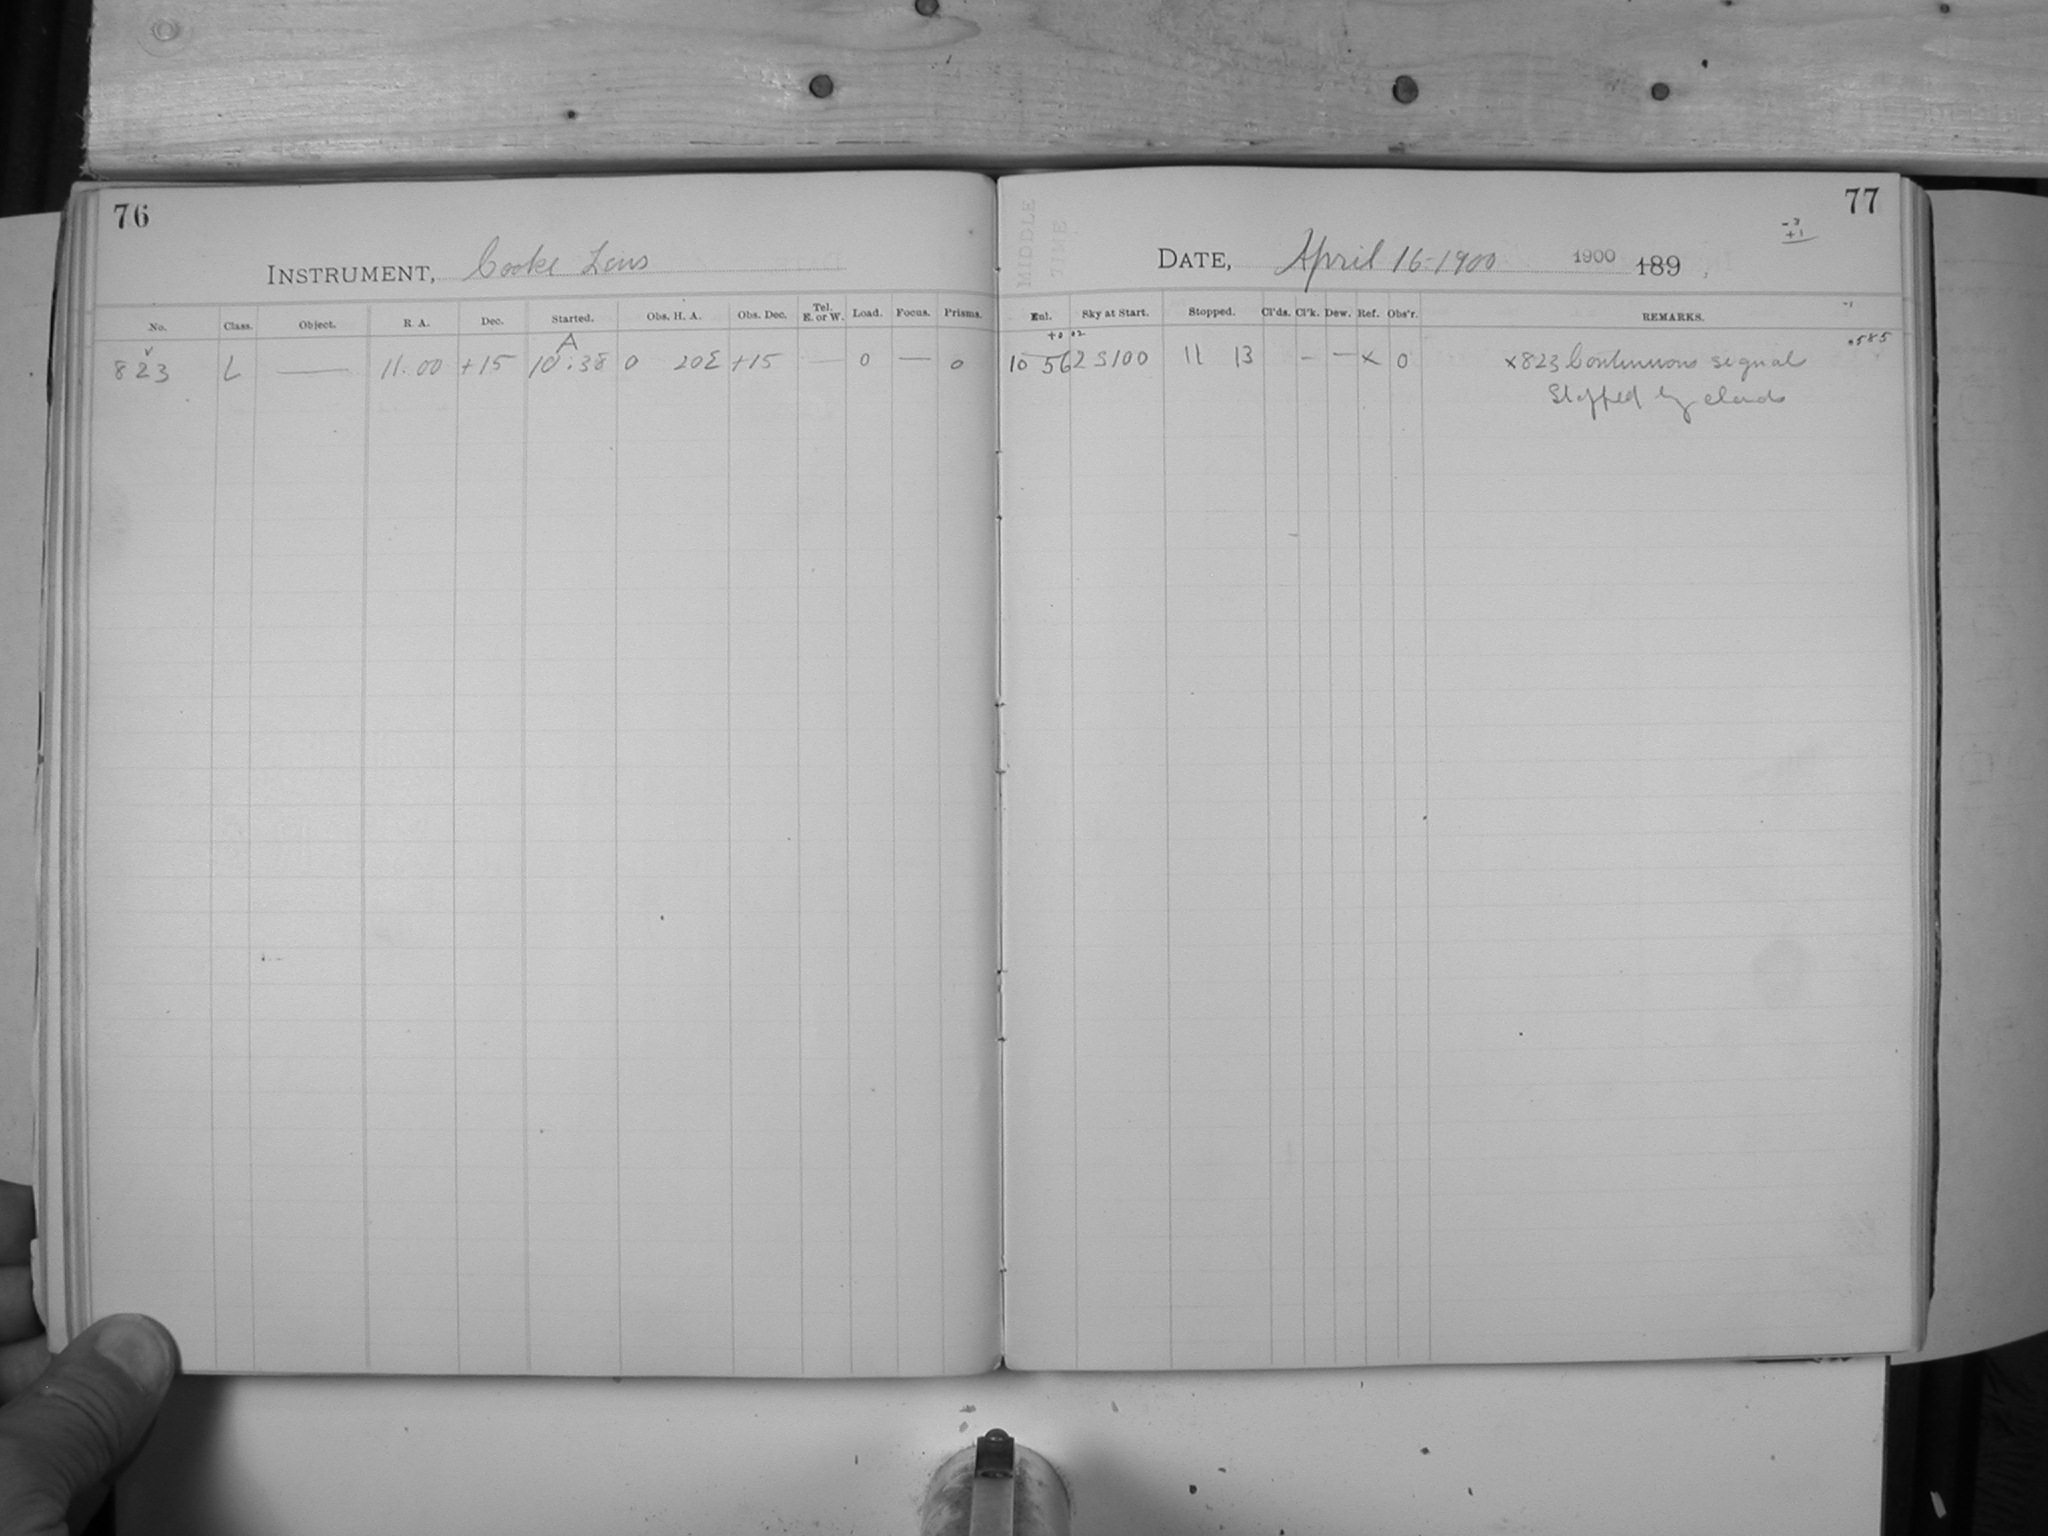 76
INSTRUMENT, Cooke Lens
No. Class. Object. R. A. Dec. Started. Obs. H. A. Obs. Dec. Tel. E. or W. Load. Focus. Prisms.
A
823 L — 11.00 +15 10:38 0 20E +15 — 0 — 0
77
-3
+1
MIDDLE
DATE, April 16-1900 1900 189 ,
Exl. Sky at Start. Stopped. Cl'ds. Cl'k. Dew. Ref. Obs'r. REMARKS.
-1
+0 02
.585
10 56 2 S100 11 13 - — x 0 x823 Continuous signal
Stopped by clouds